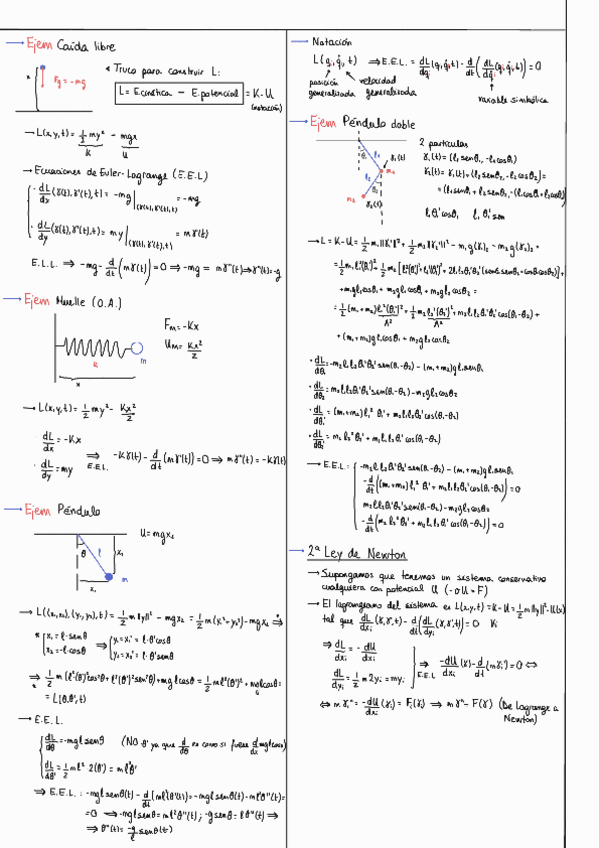 → Ejem Caída libre
x
Fg = -mg
* Truco para construir L:
L = E.cinética - E.potencial = K - U
(notación)
→ L(x,y,t) = 1/2 my² - mgx
K U
→ Ecuaciones de Euler-Lagrange (E.E.L)
· dL/dx (γ(t), γ'(t), t) = -mg |(γ(t),γ'(t),t) = -mg
· dL/dy (γ(t), γ'(t), t) = my |(γ(t),γ'(t),t) = mγ'(t)
E.E.L. ⇒ -mg - d/dt (mγ'(t)) = 0 ⇒ -mg = mγ''(t) ⇒ γ''(t) = -g
→ Ejem Muelle (O.A.)
k
m
x
F_M = -Kx
U_M = Kx²/2
→ L(x,y,t) = 1/2 my² - Kx²/2
· dL/dx = -Kx
· dL/dy = my
⇒ E.E.L.
-Kγ(t) - d/dt (mγ'(t)) = 0 ⇒ mγ''(t) = -Kγ(t)
→ Ejem Péndulo
θ
l
x₂
m
x₁
U = mgx₂
→ L((x₁,x₂), (y₁,y₂), t) = 1/2 m||y||² - mgx₂ = 1/2 m(y₁² + y₂²) - mgx₂ ⇒
* { x₁ = l·senθ
x₂ = -l·cosθ
⇒ { y₁ = x₁' = l·θ'cosθ
y₂ = x₂' = l·θ'senθ
⇒ 1/2 m (l²(θ')²cos²θ + l²(θ')²sen²θ) + mglcosθ = 1/2 ml²(θ')² + mglcosθ =
= L(θ,θ',t)
→ E.E.L.
dL/dθ = -mglsenθ (NO θ' ya que d/dθ es como si fuese d/dx mglcosx)
dL/dθ' = 1/2 ml² 2(θ') = ml²θ'
⇒ E.E.L.: -mglsenθ(t) - d/dt (ml²θ'(t)) = -mglsenθ(t) - ml²θ''(t) =
= 0 ⇒ -mglsenθ = ml²θ''(t); -gsenθ = lθ''(t) ⇒
⇒ θ''(t) = -g/l senθ(t)
→ Notación
L(q, q̇, t) ⇒ E.E.L. = dL/dq (q, q̇, t) - d/dt (dL/dq̇ (q, q̇, t)) = 0
posición generalizada
velocidad generalizada
variable simbólica
→ Ejem Péndulo doble
θ₁
l₁
γ₁(t)
m₁
l₂
θ₂
m₂
γ₂(t)
2 partículas
γ₁(t) = (l₁senθ₁, -l₁cosθ₁)
γ₂(t) = γ₁(t) + (l₂senθ₂, -l₂cosθ₂) =
= (l₁senθ₁ + l₂senθ₂, -(l₁cosθ₁ + l₂cosθ₂))
l₁θ₁'cosθ₁ l₁θ₁'sen
→ L = K - U = 1/2 m₁||γ₁'||² + 1/2 m₂||γ₂'||² - m₁g(γ₁)₂ - m₂g(γ₂)₂ =
= 1/2 m₁l₁²(θ₁')² + 1/2 m₂[l₁²(θ₁')² + l₂²(θ₂')² + 2l₁l₂θ₁'θ₂'(senθ₁senθ₂ + cosθ₁cosθ₂)] +
+ m₁gl₁cosθ₁ + m₂gl₁cosθ₁ + m₂gl₂cosθ₂ =
= 1/2 (m₁+m₂)l₁²(θ₁')² + 1/2 m₂l₂²(θ₂')² + m₂l₁l₂θ₁'θ₂'cos(θ₁-θ₂) +
+ (m₁+m₂)gl₁cosθ₁ + m₂gl₂cosθ₂
· dL/dθ₁ = -m₂l₁l₂θ₁'θ₂'sen(θ₁-θ₂) - (m₁+m₂)gl₁senθ₁
· dL/dθ₂ = m₂l₁l₂θ₁'θ₂'sen(θ₁-θ₂) - m₂gl₂senθ₂
· dL/dθ₁' = (m₁+m₂)l₁²θ₁' + m₂l₁l₂θ₂'cos(θ₁-θ₂)
· dL/dθ₂' = m₂l₂²θ₂' + m₂l₁l₂θ₁'cos(θ₁-θ₂)
→ E.E.L.: { -m₂l₁l₂θ₁'θ₂'sen(θ₁-θ₂) - (m₁+m₂)gl₁senθ₁
- d/dt ((m₁+m₂)l₁²θ₁' + m₂l₁l₂θ₂'cos(θ₁-θ₂)) = 0
m₂l₁l₂θ₁'θ₂'sen(θ₁-θ₂) - m₂gl₂senθ₂
- d/dt (m₂l₂²θ₂' + m₂l₁l₂θ₁'cos(θ₁-θ₂)) = 0
→ 2ª Ley de Newton
→ Supongamos que tenemos un sistema conservativo
cualquiera con potencial U (-∇U = F)
→ El lagrangiano del sistema es L(x,y,t) = K - U = 1/2 m||y||² - U(x)
tal que dL/dxᵢ (γ,γ',t) - d/dt (dL/dyᵢ (γ,γ',t)) = 0 ∀i
⇒ dL/dxᵢ = -dU/dxᵢ
dL/dyᵢ = 1/2 m2yᵢ = myᵢ
⇒ E.E.L -dU/dxᵢ (γ) - d/dt (mγᵢ') = 0 ⇔
⇔ mγᵢ'' = -dU/dxᵢ (γ) = Fᵢ(γ) ⇒ mγ'' = F(γ) (De Lagrange a
Newton)